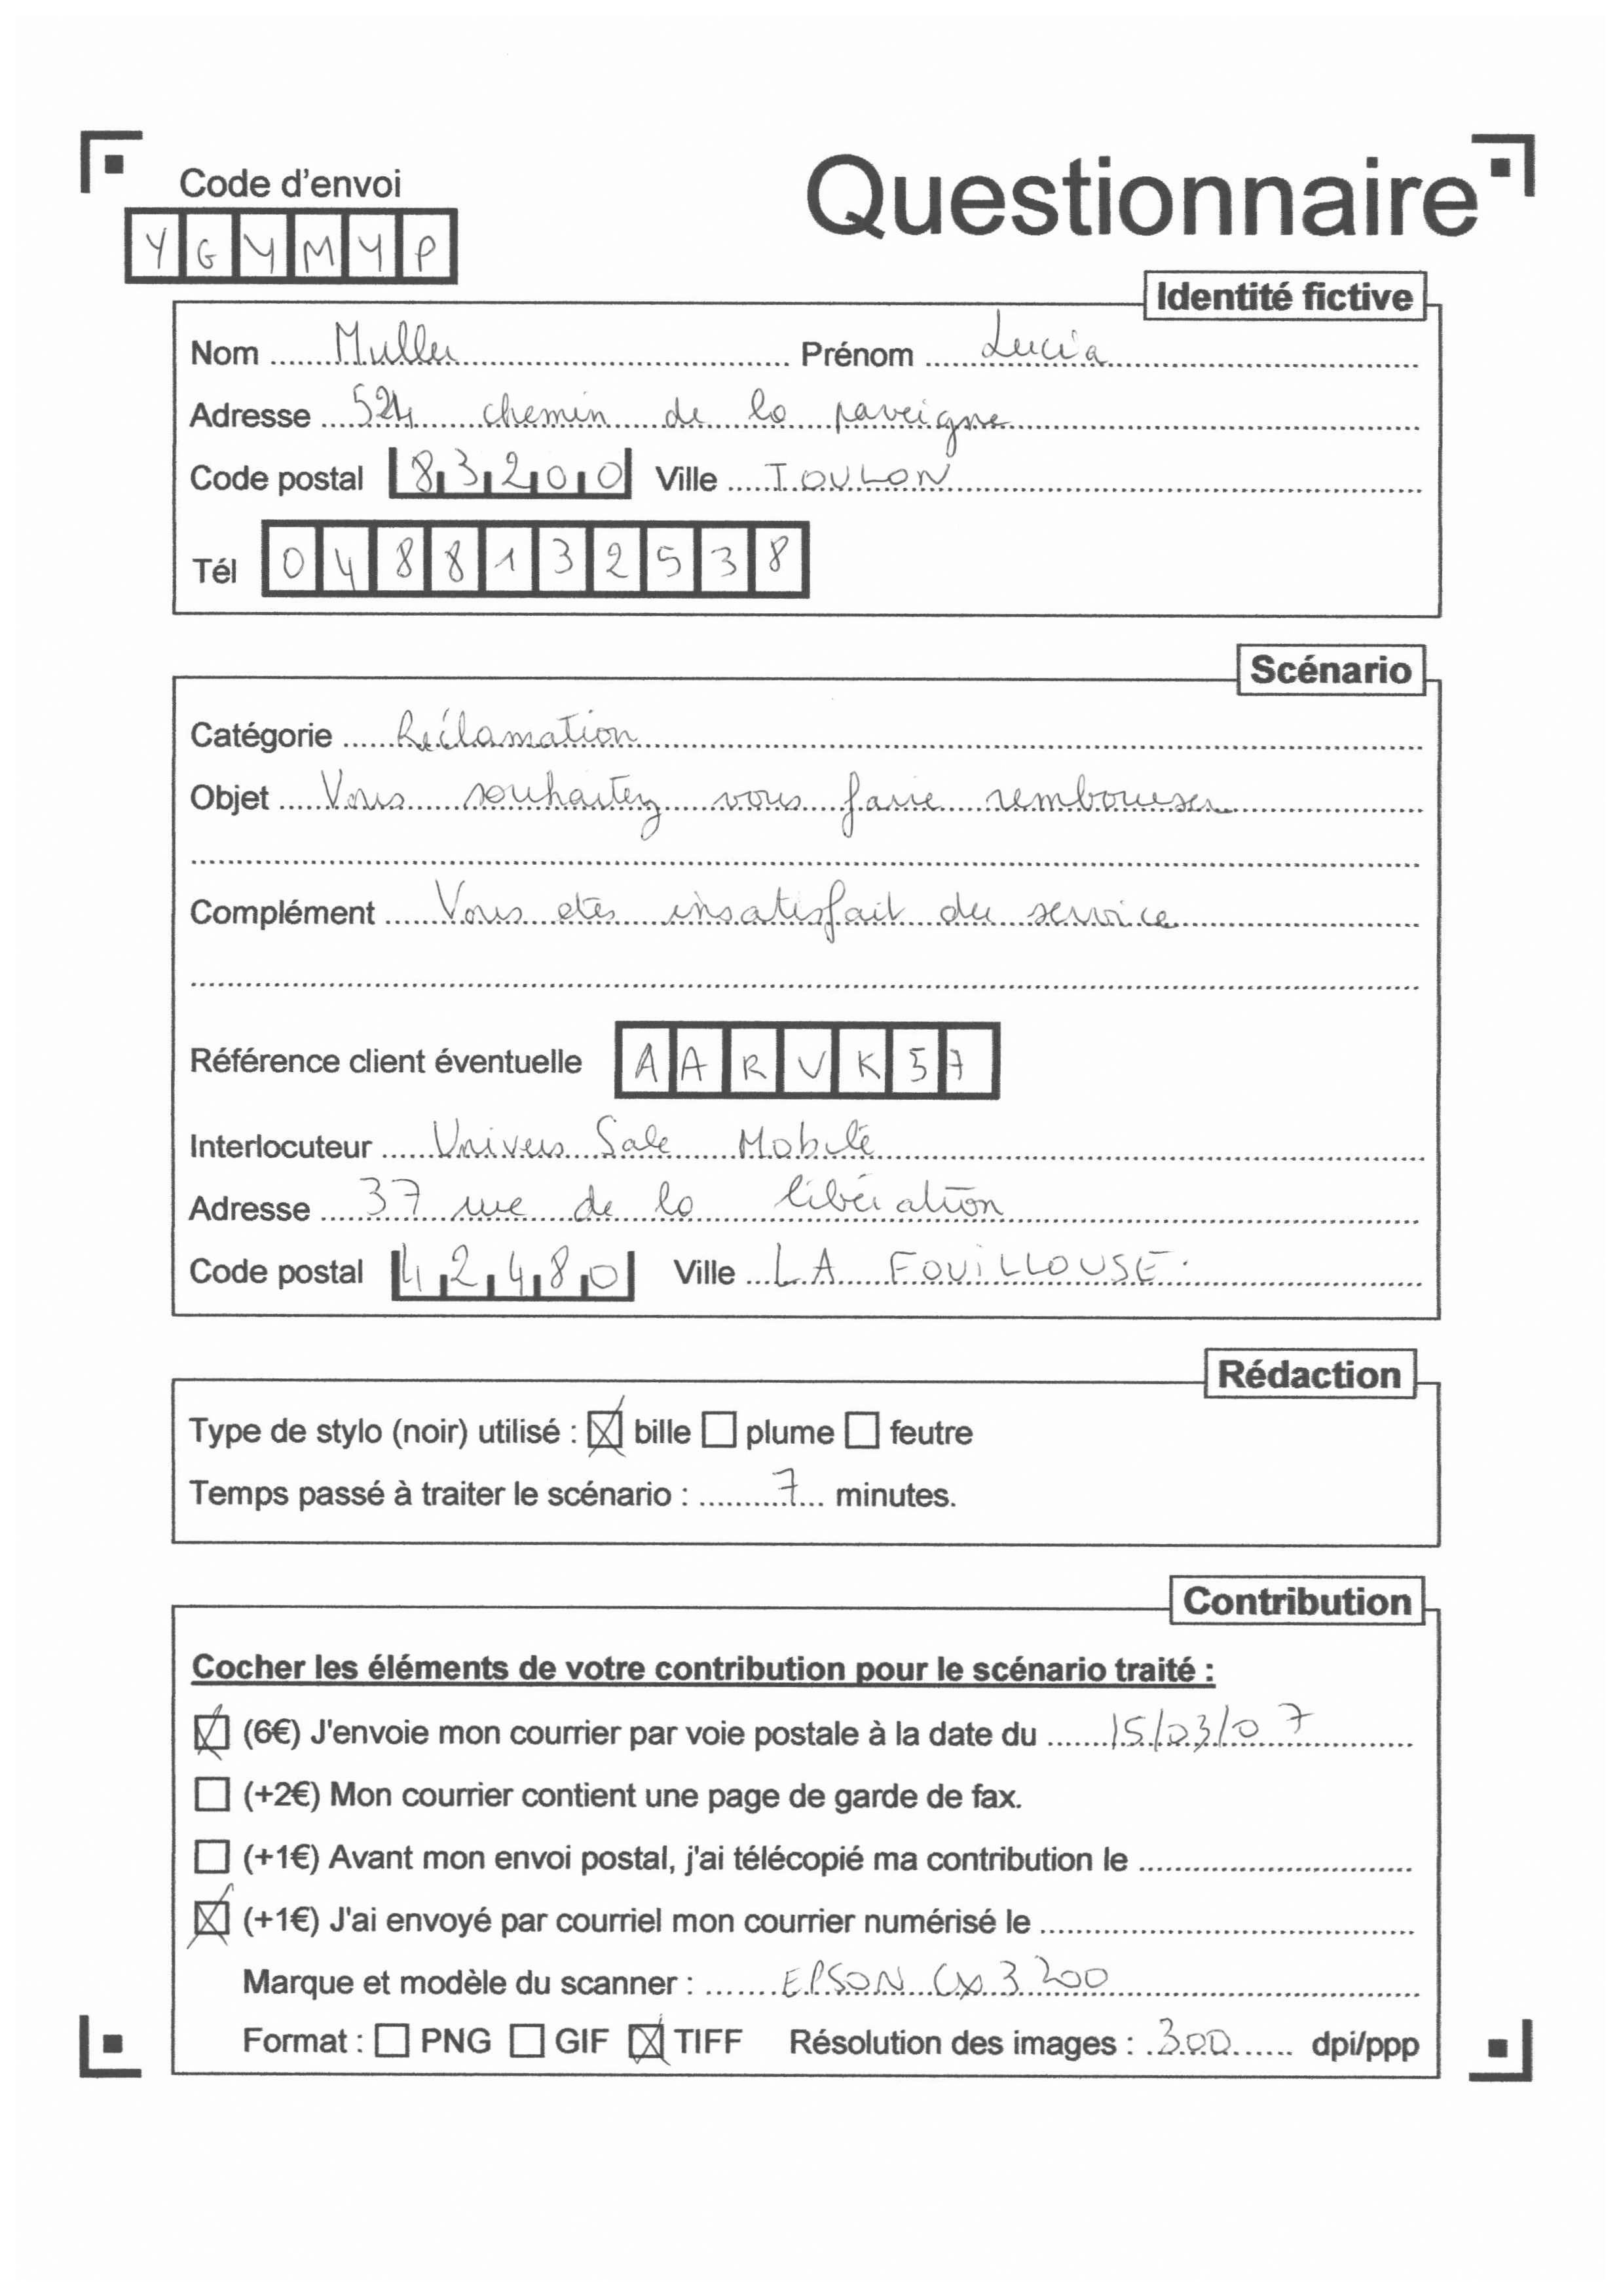 Code d'envoi
Questionnaire
YGYMYP
Identité fictive
Nom Muller Prénom Lucia
Adresse 524 chemin de la paveigne
Code postal 83200 Ville TOULON
Tél 0488132538
Scénario
Catégorie Réclamation
Objet Vous souhaitez vous faire rembourser
Complément Vous etes insatisfait du service
Référence client éventuelle AARVK57
Interlocuteur Univers Sale Mobile
Adresse 37 rue de la libération
Code postal 42480 Ville LA FOUILLOUSE.
Rédaction
Type de stylo (noir) utilisé : bille plume feutre
Temps passé à traiter le scénario : 7 minutes.
Contribution
Cocher les éléments de votre contribution pour le scénario traité :
(6€) J'envoie mon courrier par voie postale à la date du 15/03/07
(+2€) Mon courrier contient une page de garde de fax.
(+1€) Avant mon envoi postal, j'ai télécopié ma contribution le
(+1€) J'ai envoyé par courriel mon courrier numérisé le
Marque et modèle du scanner : EPSON CX 3200
Format : PNG GIF TIFF Résolution des images : 300 dpi/ppp